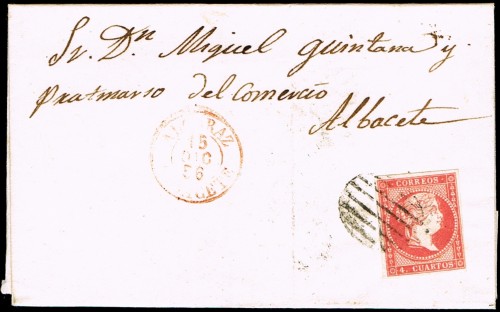 Sr. Dn Miguel Quintana y
Pratmarso del Comercio
Albacete
ALCARAZ
15
DIC
56
ALBACETE
CORREOS
4. CUARTOS